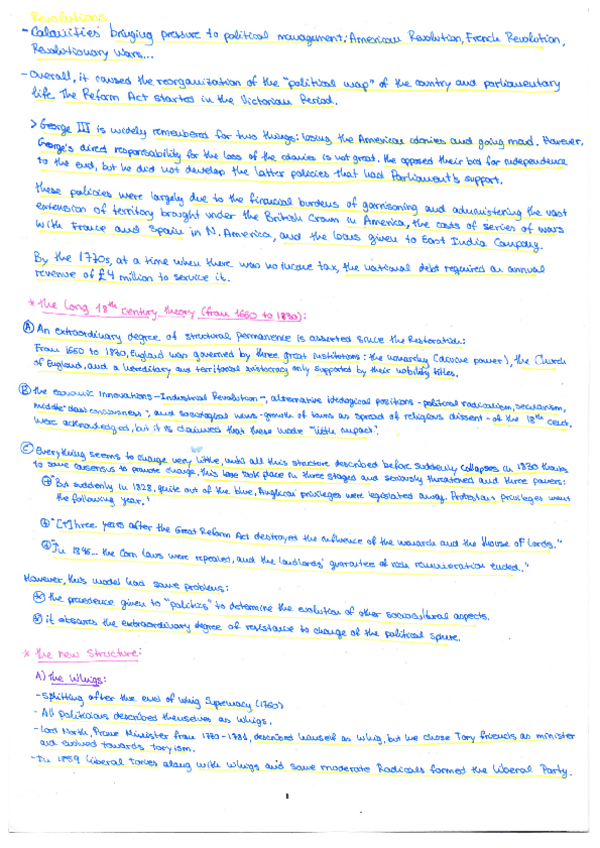 Revolutions
- Calamities bringing pressure to political management: American Revolution, French Revolution,
Revolutionary Wars...
- Overall, it caused the reorganization of the "political map" of the country and parliamentary
life. The Reform Act started in the Victorian Period.
> George III is widely remembered for two things: losing the American colonies and going mad. However,
George's direct responsability for the loss of the colonies is not great. He opposed their bid for independence
to the end, but he did not develop the latter policies that had Parliament's support.
These policies were largely due to the financial burdens of garrisoning and administering the vast
extension of territory brought under the British Crown in America, the costs of series of wars
with France and Spain in N. America, and the loans given to East India Company.
By the 1770s, at a time when there was no income tax, the national debt required an annual
revenue of £4 million to service it.
* The long 18th century theory (from 1660 to 1830):
A) An extraordinary degree of structural permanence is asserted since the Restoration:
From 1660 to 1830, England was governed by three great institutions: the monarchy (divine power), the Church
of England, and a hereditary and territorial aristocracy only supported by their nobility titles.
B) The economic innovations - Industrial Revolution -, alternative ideological positions - political radicalism, secularism,
middle class consciousness -, and sociological news - growth of towns as spread of religious dissent - of the 18th cent,
were acknowledged, but it is claimed that these made "little impact".
C) Everything seems to change very little, until all this structure described before suddenly collapses in 1830 thanks
to some consensus to promote change. This took place in three stages and seriously threatened and three powers:
"But suddenly in 1828, quite out of the blue, Anglican privileges were legislated away. Protestant privileges went
the following year."
"[T]hree years after the Great Reform Act destroyed the influence of the monarch and the House of Lords."
"In 1846... the Corn Laws were repealed, and the landlords' guarantee of rich remuneration ended."
However, this model had some problems:
* the precedence given to "politics" to determine the evolution of other sociocultural aspects.
* it obscures the extraordinary degree of resistance to change of the political sphere.
* The new structure:
A) The Whigs:
- Splitting after the end of Whig Supremacy (1760)
- All politicians described themselves as Whigs.
- Lord North, Prime Minister from 1770-1782, described himself as Whig, but he chose Tory friends as minister
and evolved towards toryism.
- In 1859 liberal Tories along with Whigs and some moderate Radicals formed the Liberal Party.
1